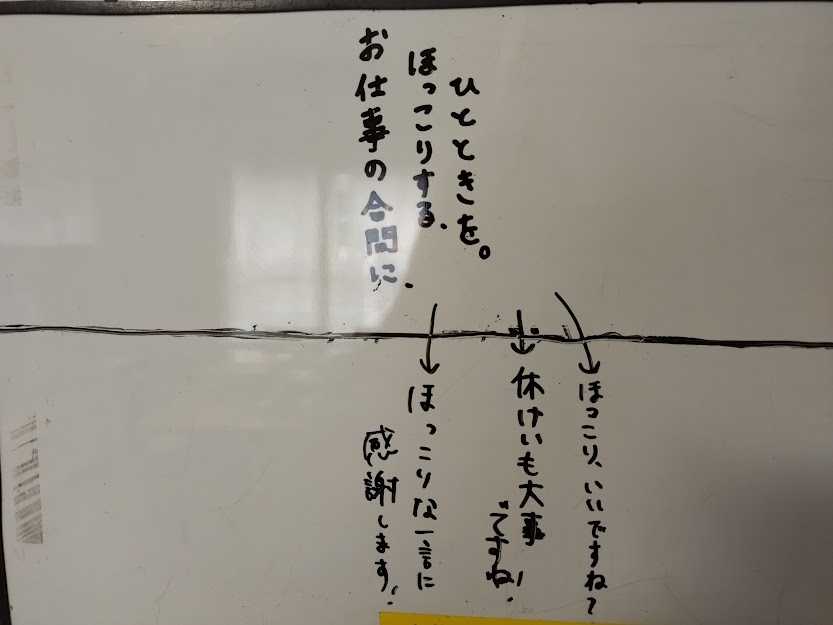 お仕事の合間に、
ほっこりする、
ひとときを。
ほっこり、いいですね〜
休けいも大事
ですね!
ほっこりな一言に
感謝します!